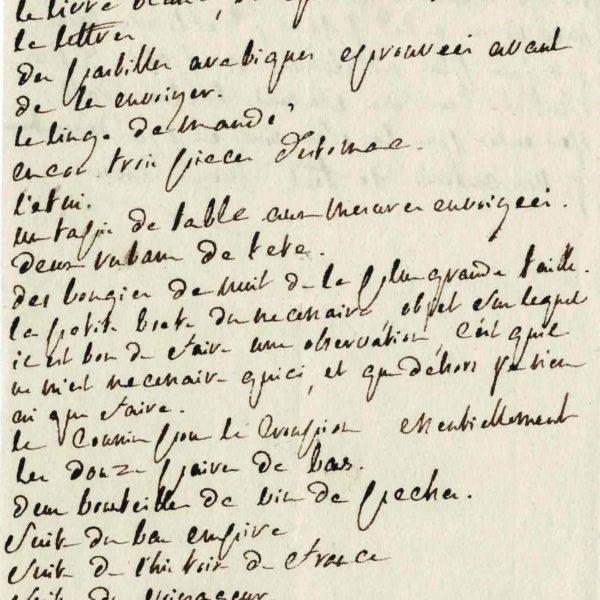 le livre
la lettre
des pastilles arabiques eprouvees avant
de les envoyer.
le linge demandé
encor trois pieces d'estomac.
l'etui.
un tapis de table aux mesures envoyées.
deux rubans de tete.
des bougies de nuit de la plus grande taille.
la petite boete du necessaire, objet sur lequel
il est bon de faire une observation, c'est qu'il
ne m'est necessaire qu'ici, et que dehors je n'en
ai que faire.
le coussin pour le croupion essentiellement
les douze paires de bas.
deux bouteilles de vin de pecher.
suite du bas empire
suite de l'histoire de france
suite du voyageur